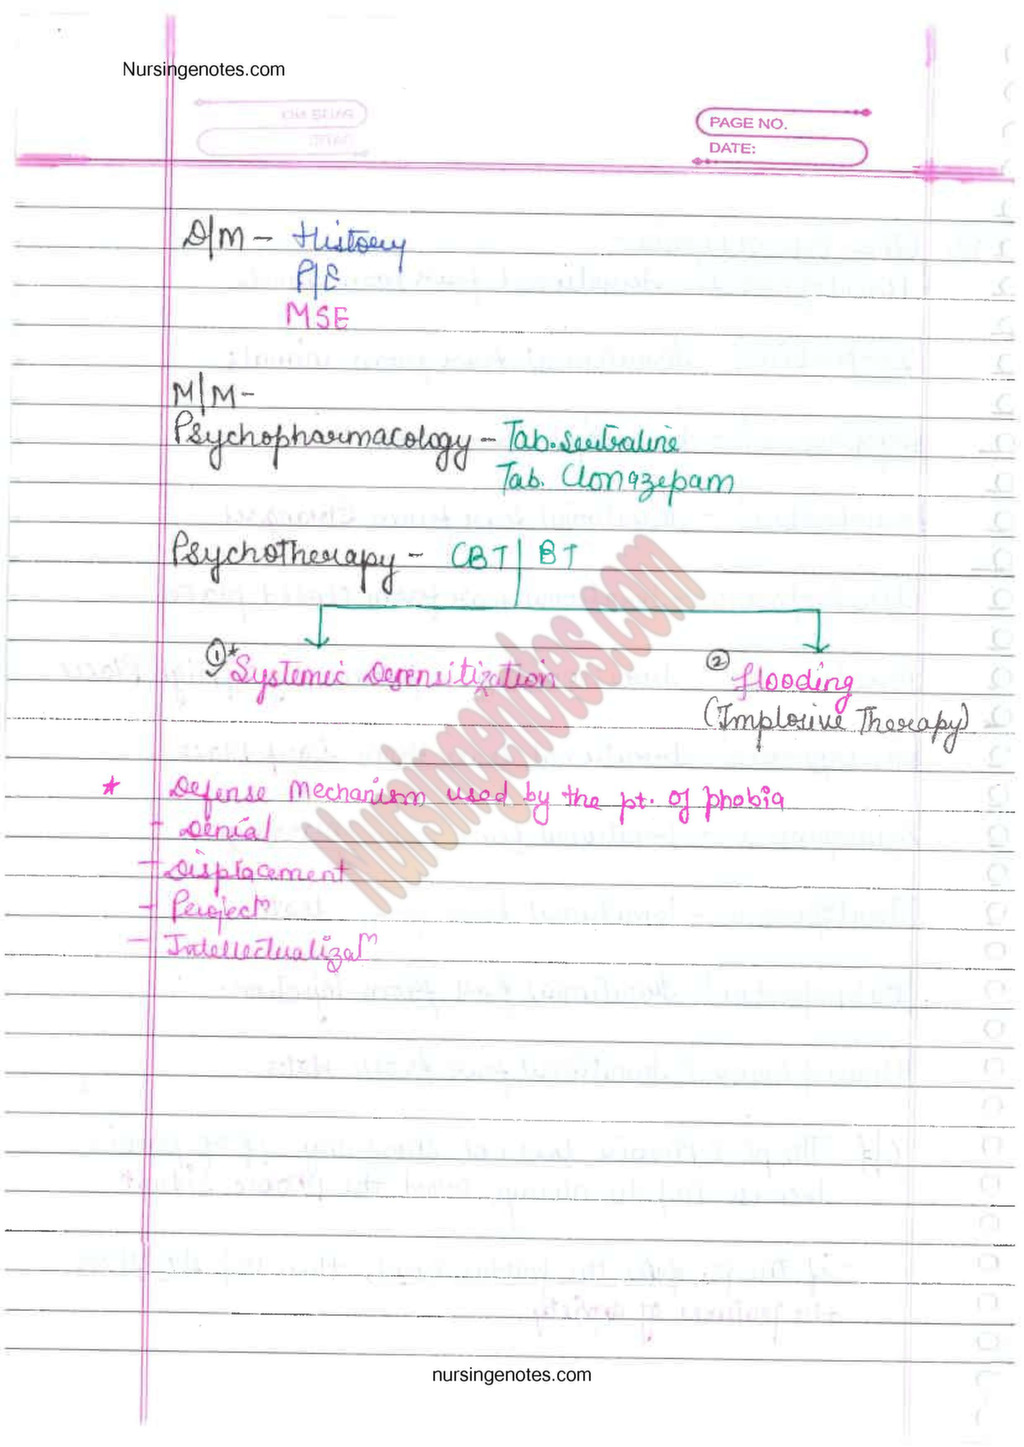 Nursingenotes.com
PAGE NO.
DATE:
D/M - History
P/E
MSE
M/M -
Psychopharmacology - Tab. Sertraline
Tab. Clonazepam
Psychotherapy - CBT | BT
① * Systemic Desensitization
② flooding
(Implosive Therapy)
* Defense Mechanism used by the pt. of phobia
- Denial
- Displacement
- Projectⁿ
- Intellectualizatⁿ
Nursingenotes.com
nursingenotes.com